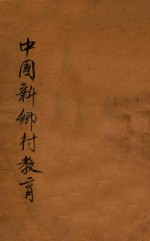 中國新鄉村教育